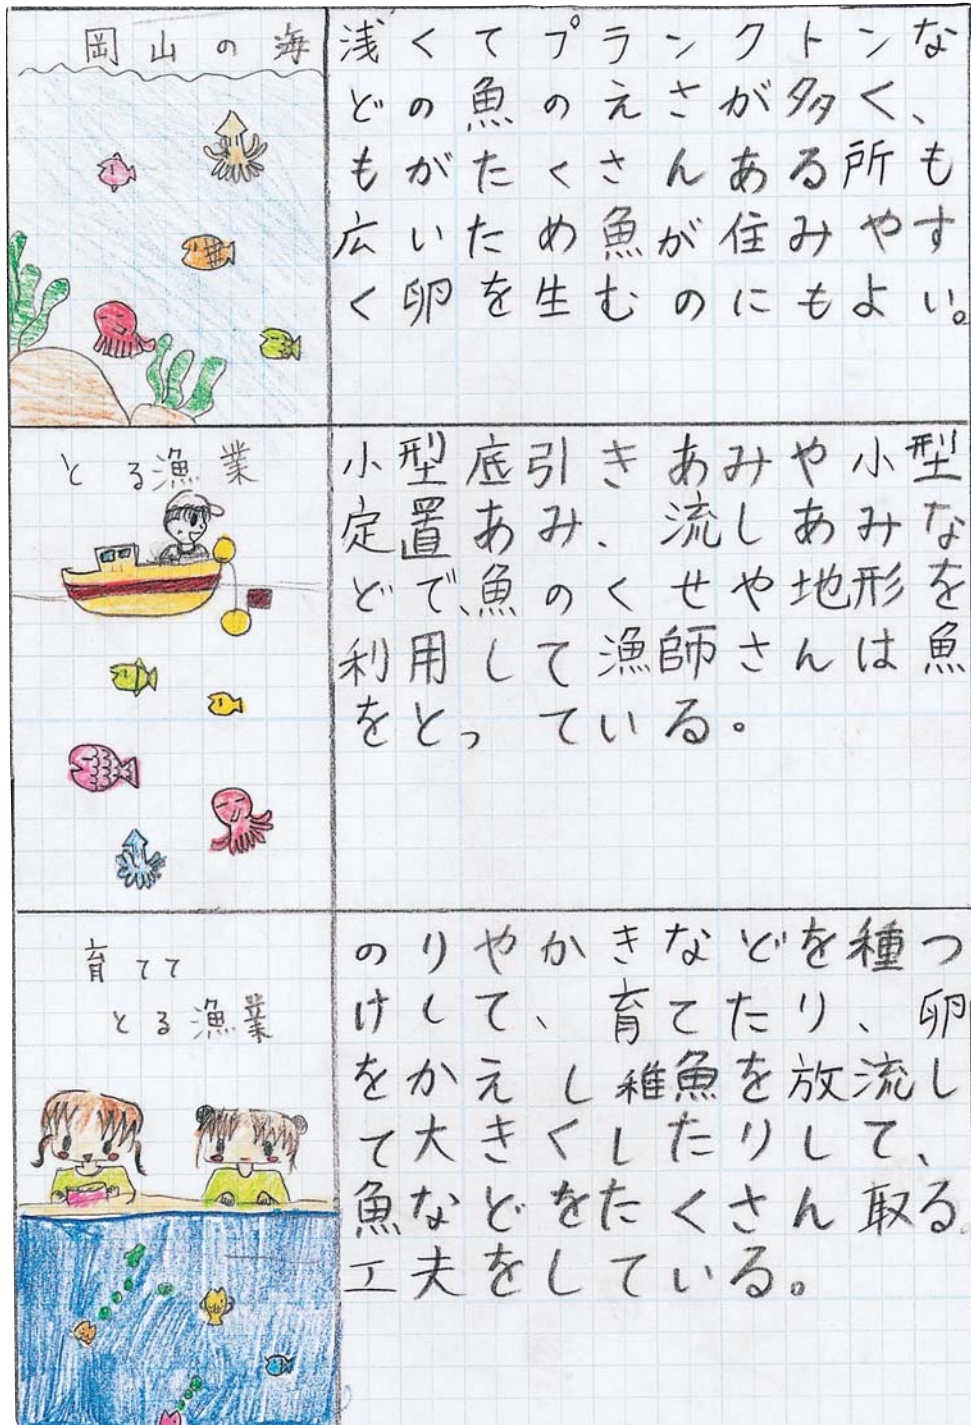 岡山の海
浅くてプランクトンな
どの魚のえさが多く、
もがたくさんある所も
広いため魚が住みやす
く卵を生むのにもよい。
とる漁業
小型底引きあみや小型
定置あみ、流しあみな
どで、魚のくせや地形を
利用して漁師さんは魚
をとっている。
育てて
とる漁業
のりやかきなどを種つ
けして、育てたり、卵
をかえし稚魚を放流し
て大きくしたりして、
魚などをたくさん取る
工夫をしている。